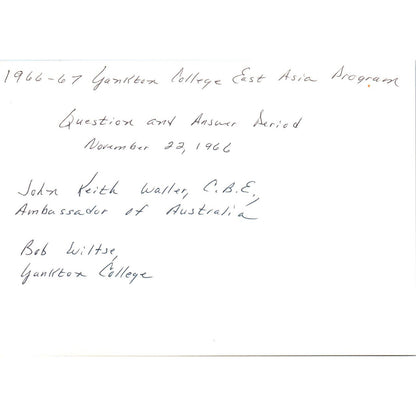 1966-67 Yankton College East Asia Program
Question and Answer Period
November 22, 1966
John Keith Waller, C.B.E.,
Ambassador of Australia
Bob Wiltse,
Yankton College